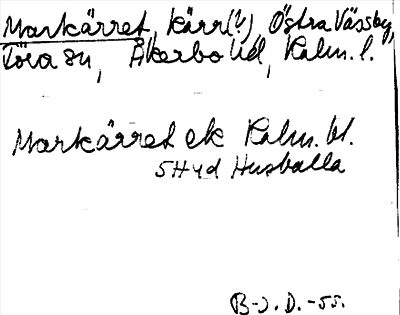 Markärret, kärr(?), Östra Vässby,
Töva sn, Åkerbo hd, Kalm. l.
Markärret ek Kalm. bl.
5H4d Husballa
B-J. D. -55.